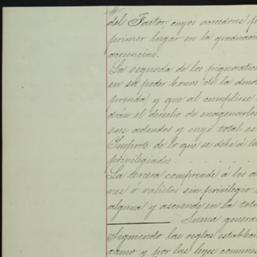 del Factor cuyos acredores p
primer lugar en la graduacion
acreencias.
La segunda de los pignoratici
en su poder bonos de la deud
prenda y que al cumplirse
drán el derecho de enagenarlos
sus adeudos y cuyo total es
Importe de lo que se debe á lo
privilegiados
La tercera comprende á los a
res ó valistas sin privilegio
alguna y asciende en la tota
Suma genera
Siguiendo las reglas estableci
como y por las leyes comunes